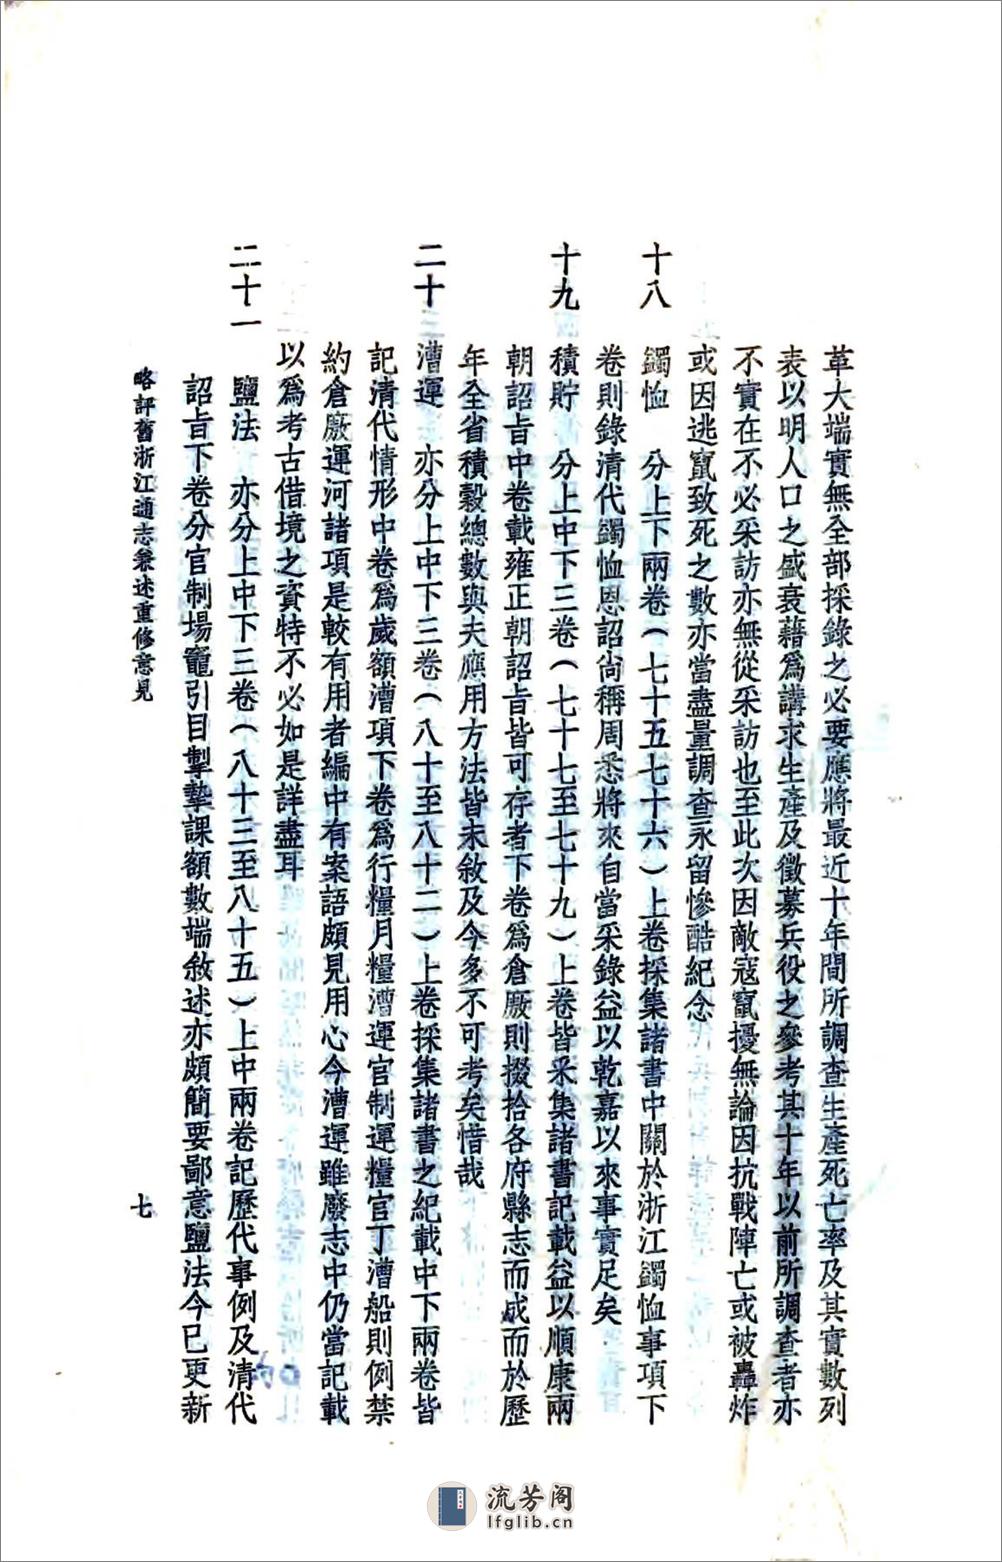 革大端實無全部採錄之必要應將最近十年間所調查生產死亡率及其實數列
表以明人口之盛衰藉爲講求生產及徵募兵役之參考其十年以前所調查者亦
不實在不必采訪亦無從采訪也至此次因敵寇竄擾無論因抗戰陣亡或被轟炸
或因逃竄致死之數亦當盡量調查永留慘酷紀念
十八　蠲恤　分上下兩卷（七十五七十六）上卷採集諸書中關於浙江蠲恤事項下
卷則錄清代蠲恤恩詔尚稱周悉將來自當采錄益以乾嘉以來事實足矣
十九　積貯　分上中下三卷（七十七至七十九）上卷皆采集諸書記載益以順康兩
朝詔旨中卷載雍正朝詔旨皆可存者下卷爲倉廒則掇拾各府縣志而成而於歷
年全省積穀總數與夫應用方法皆未敘及今多不可考矣惜哉
二十　漕運　亦分上中下三卷（八十至八十二）上卷採集諸書之紀載中下兩卷皆
記清代情形中卷爲歲額漕項下卷爲行糧月糧漕運官制運糧官丁漕船則例禁
約倉廒運河諸項是較有用者編中有案語頗見用心今漕運雖廢志中仍當記載
以爲考古借境之資特不必如是詳盡耳
二十一　鹽法　亦分上中下三卷（八十三至八十五）上中兩卷記歷代事例及清代
詔旨下卷分官制場竈引目掣摯課額數端敘述亦頗簡要鄙意鹽法今已更新
略評舊浙江通志兼述重修意見
七
流芳阁
lfglib.cn